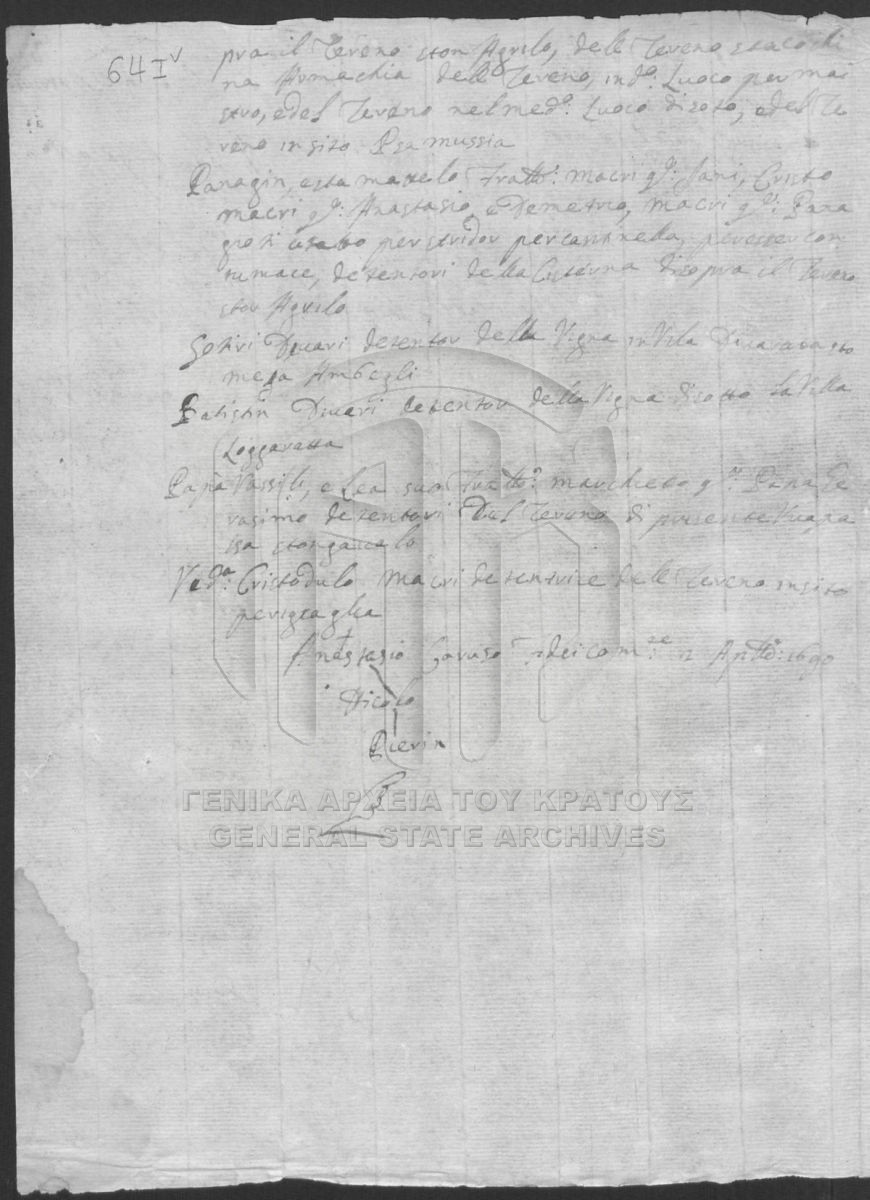 64I v
pra il Tereno ston Agrilo, dell Tereno staco
na Armachia dell Tereno, in do. Luoco per mai
stro, e del Tereno nel med.o Luoco di soto, e del Te
reno in sito Psamussia
Panagin, e Stamatelo Fratt.i macri q.m Jani, Cristo
macri q.m Anastasio, e Demetrio, macri q.m Pana
per stridor per cantinella, per esser con
tumace, detentori della Cisterna di sopra il Tereno
ston Agrilo
Sotiri Ducari detentor della Vigna in Vila
Ambegli
Batistin Ducari detentor della Vigna di sotto la Villa
Loggaratta
Papa Vassili, e suo Fratt.o marcheto q.m Papa Ge
rasimo detentori Del Tereno di presente
Ved.a Cristodulo Macri detentrice dell Tereno in sito
Anastasio Caruso 1690
Nicolo
Pierin
ΓΕΝΙΚΑ ΑΡΧΕΙΑ ΤΟΥ ΚΡΑΤΟΥΣ
GENERAL STATE ARCHIVES